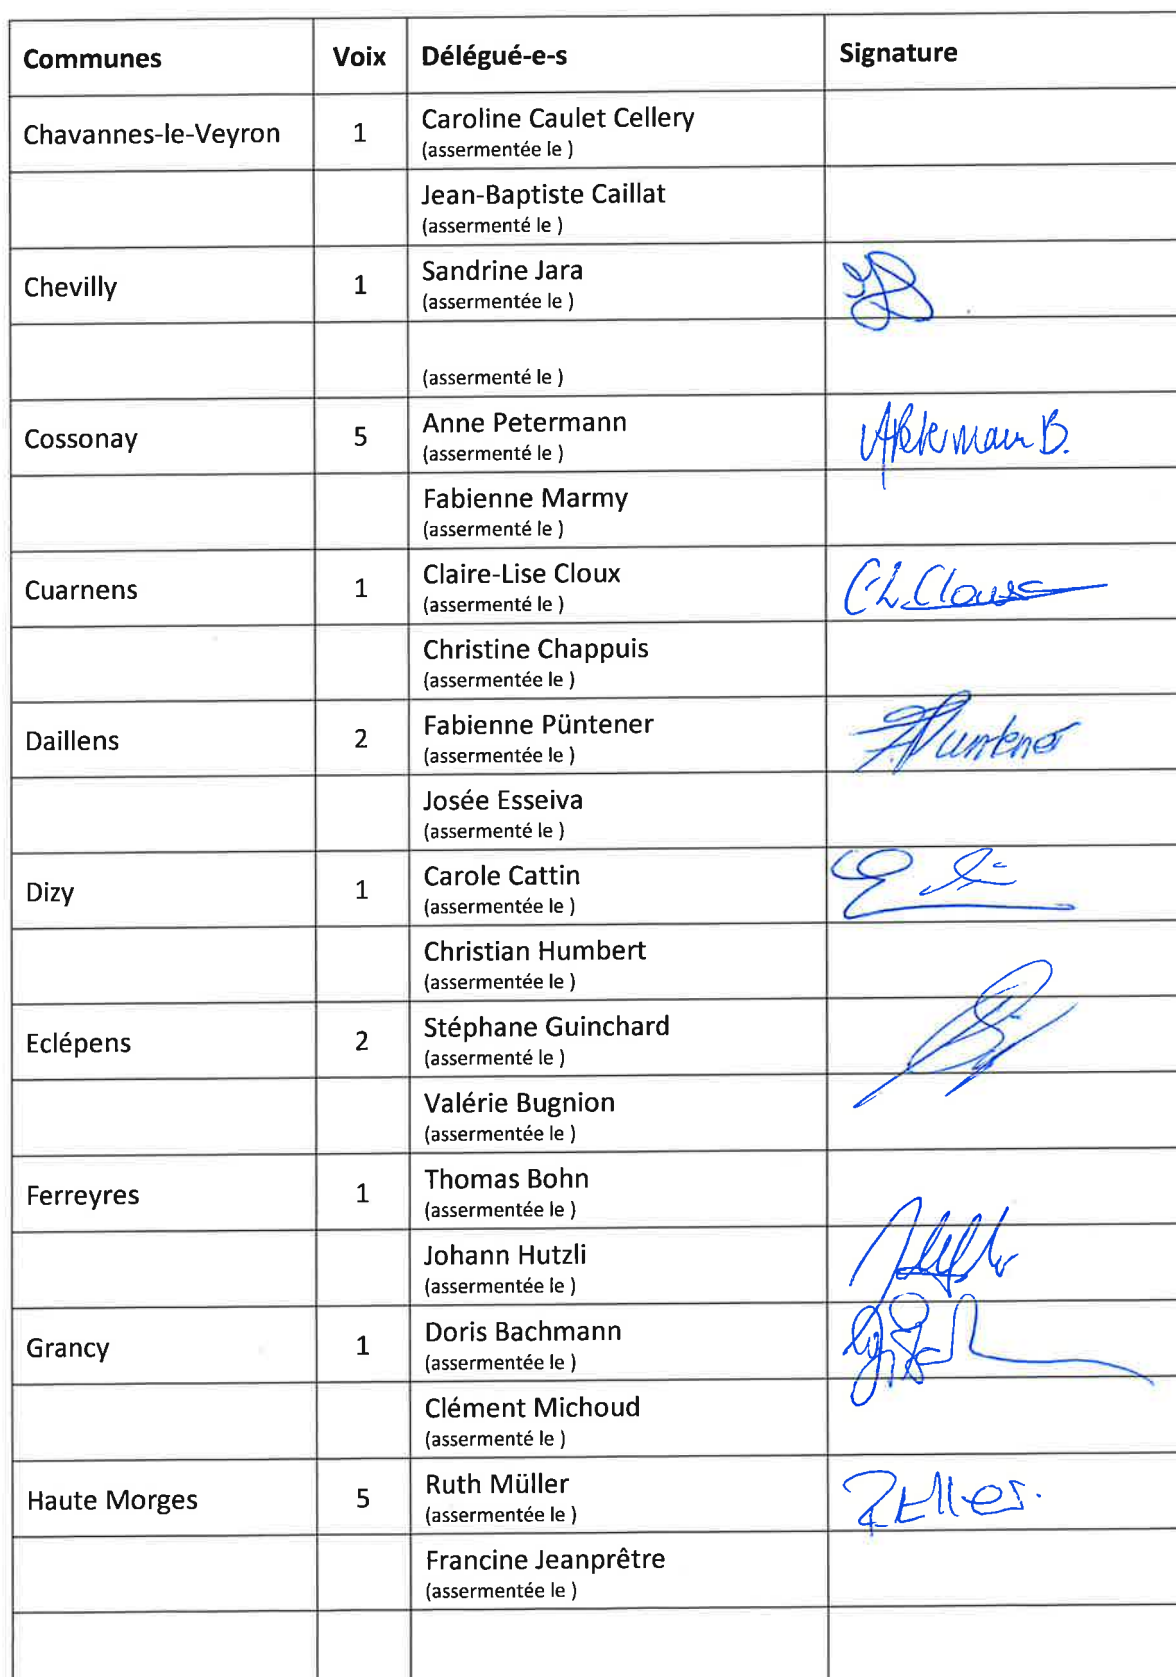 Communes Voix Délégué-e-s Signature
Chavannes-le-Veyron 1 Caroline Caulet Cellery
(assermentée le )
Jean-Baptiste Caillat
(assermenté le )
Chevilly 1 Sandrine Jara
(assermentée le )
(assermenté le )
Cossonay 5 Anne Petermann
(assermenté le )
Fabienne Marmy
(assermenté le )
Cuarnens 1 Claire-Lise Cloux C-L. Cloux
(assermenté le )
Christine Chappuis
(assermentée le )
Daillens 2 Fabienne Püntener
(assermentée le )
Josée Esseiva
(assermenté le )
Dizy 1 Carole Cattin
(assermentée le )
Christian Humbert
(assermentée le )
Eclépens 2 Stéphane Guinchard
(assermenté le )
Valérie Bugnion
(assermentée le )
Ferreyres 1 Thomas Bohn
(assermentée le )
Johann Hutzli
(assermentée le )
Grancy 1 Doris Bachmann
(assermentée le )
Clément Michoud
(assermenté le )
Haute Morges 5 Ruth Müller
(assermentée le )
Francine Jeanprêtre
(assermentée le )